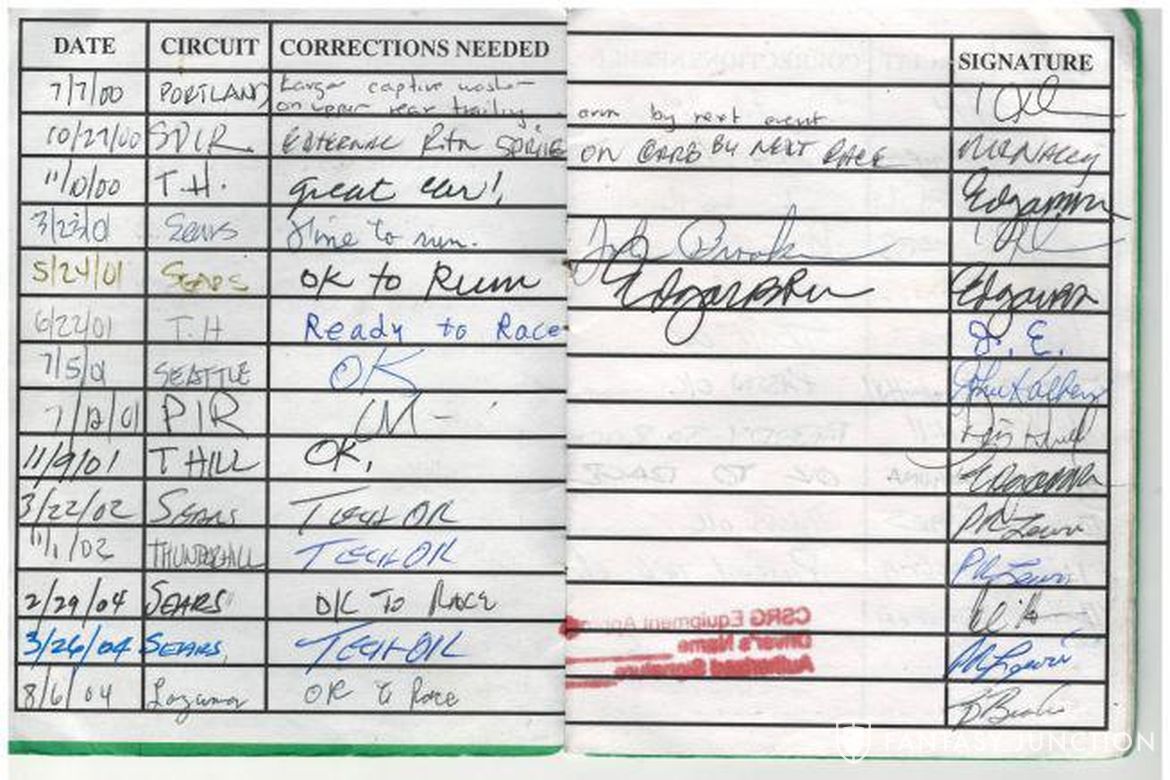 DATE CIRCUIT CORRECTIONS NEEDED SIGNATURE
7/7/00 PORTLAND Larger captive washer
on upper rear trailing arm by next event
10/27/00 SPIR EXTERNAL Rtn SPRING ON CARB BY NEXT RACE McNALLY
11/10/00 T.H. great car!
3/23/01 Sears Fine to run.
5/24/01 SEARS OK to Run
6/22/01 T.H Ready to Race J. E.
7/5/01 SEATTLE OK
7/12/01 PIR
11/9/01 T HILL OK,
3/22/02 SEARS TECH OK
11/1/02 THUNDERHILL TECH OK
2/29/04 SEARS OK TO RACE
3/26/04 SEARS TECH OK
8/6/04 Laguna OK to Race
CSRG Equipment
Driver's Name
Authorized Signature
FANTASY JUNCTION